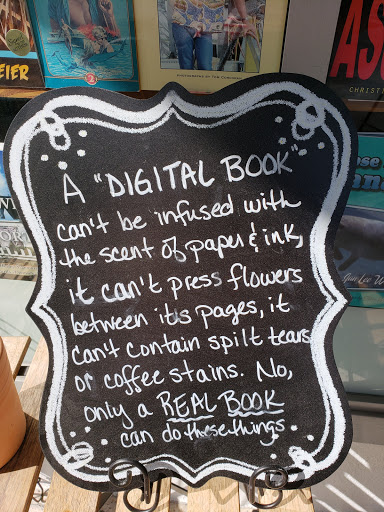 EIER
2
PHOTOGRAPHS BY TOM
AS
CHRIST
A "DIGITAL BOOK"
can't be infused with
the scent of paper & ink,
it can't press flowers
between its pages, it
can't contain spilt tears
or coffee stains. No,
only a REAL BOOK
can do these things.